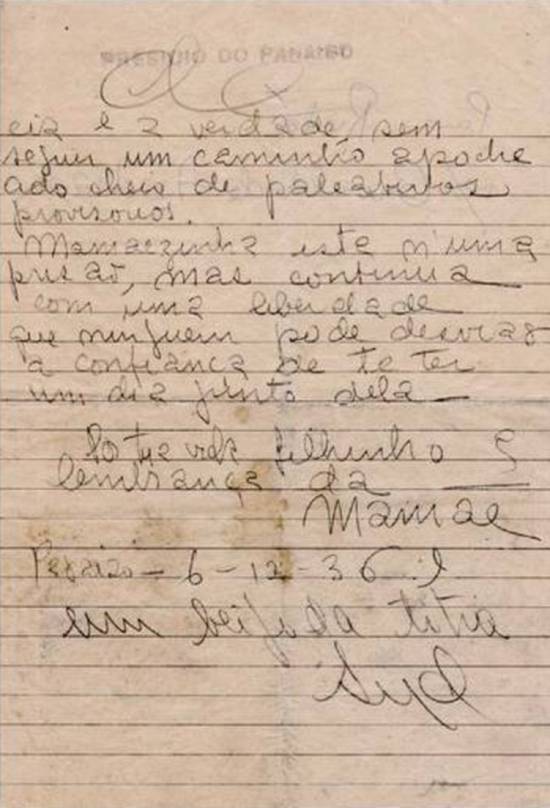 PRESIDIO DO PARAISO
cia e a verdade sem
seguir um caminho
ado cheio de
provisorios.
Mamaezinha esta n'uma
prisaõ, mas continua
com uma liberdade
que ninguem pode desviar
a confiança de te ter
um dia junto dela —
filhinho
lembrança da
Mamae
Paraizo — 6 - 12 - 36
um beijo da titia
Syd